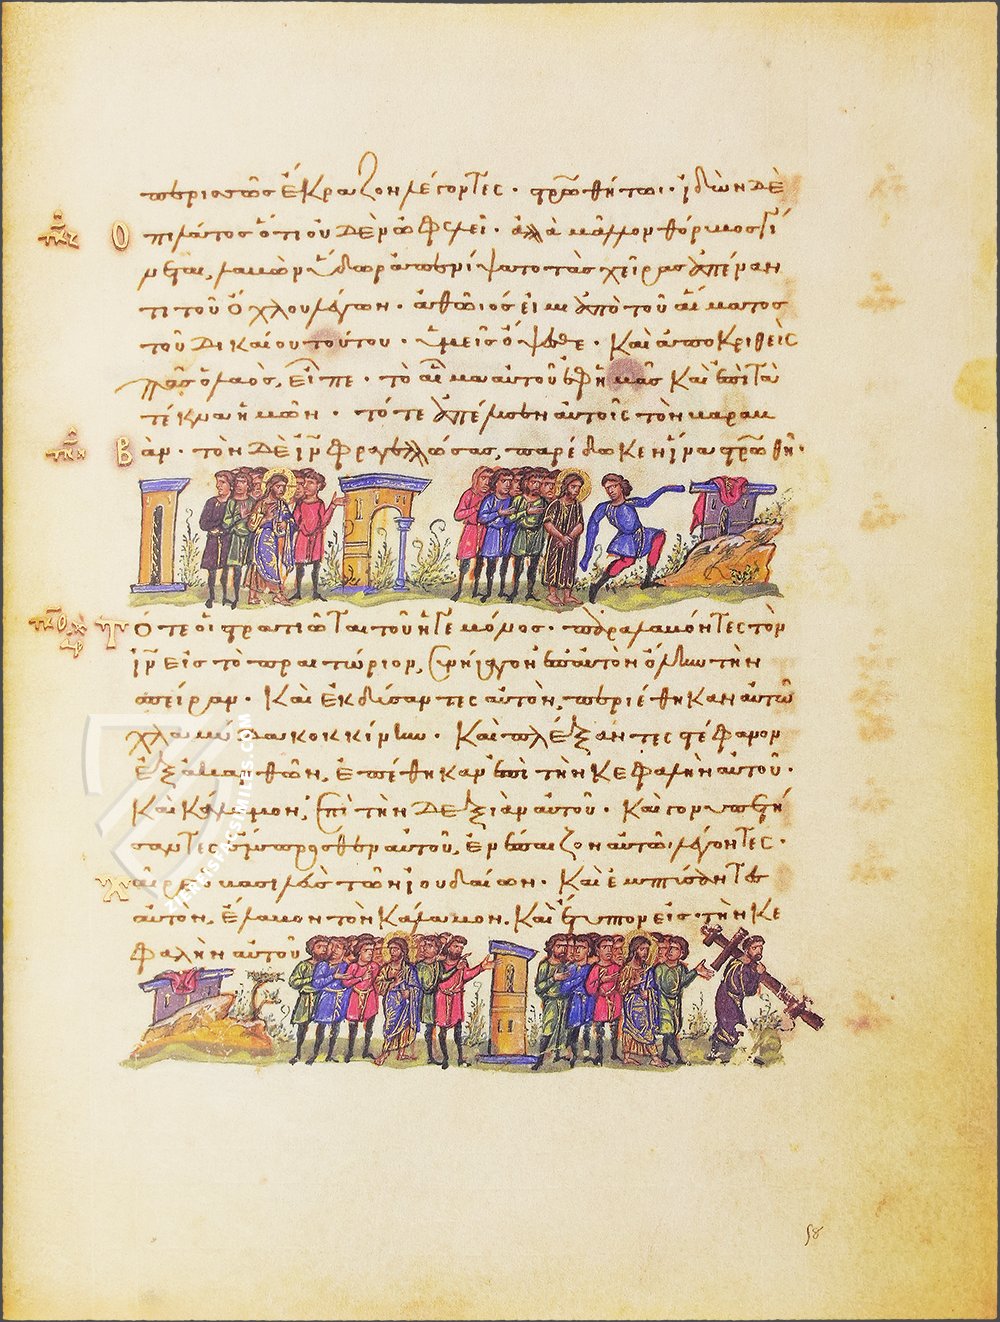 περισσῶς ἔκραζον λέγοντες· στρωθήτω· ἰδὼν δὲ
Ὁ πιλάτος ὅτι οὐδὲν ὠφελεῖ· ἀλλὰ μᾶλλον θόρυβος γί
νεται, λαβὼν ὕδωρ ἀπενίψατο τὰς χεῖρας ἀπέναν
τι τοῦ ὄχλου λέγων· ἀθῶιός εἰμι ἀπὸ τοῦ αἵματος
τοῦ δικαίου τούτου· ὑμεῖς ὄψεσθε· καὶ ἀποκριθεὶς
πᾶς ὁ λαὸς, εἶπε· τὸ αἷμα αὐτοῦ ἐφ' ἡμᾶς καὶ ἐπὶ τὰ
τέκνα ἡμῶν· τότε ἀπέλυσεν αὐτοῖς τὸν βαραβ
βὰν· τὸν δὲ ιν φραγελλώσας, παρέδωκεν ἵνα στρωθῆ·
Τότε οἱ στρατιῶται τοῦ ἡγεμόνος· παραλαβόντες τὸν
ιν εἰς τὸ πραιτώριον, συνήγαγον ἐπ' αὐτὸν ὅλην τὴν
σπεῖραν· καὶ ἐκδύσαντες αὐτὸν, περιέθηκαν αὐτῶ
χλαμύδα κοκκίνην· καὶ πλέξαντες στέφανον
ἐξ ἀκανθῶν, ἐπέθηκαν ἐπὶ τὴν κεφαλὴν αὐτοῦ·
καὶ κάλαμον, ἐπὶ τὴν δεξιὰν αὐτοῦ· καὶ γονυπετή
σαντες ἔμπροσθεν αὐτοῦ, ἐνέπαιζον αὐτῶ λέγοντες·
χαῖρε ὁ βασιλεὺς τῶν ἰουδαίων· καὶ ἐμπτύσαντες
αὐτὸν, ἔλαβον τὸν κάλαμον, καὶ ἔτυπτον εἰς τὴν κε
φαλὴν αὐτοῦ
ZIEREISFACSIMILES.COM
58